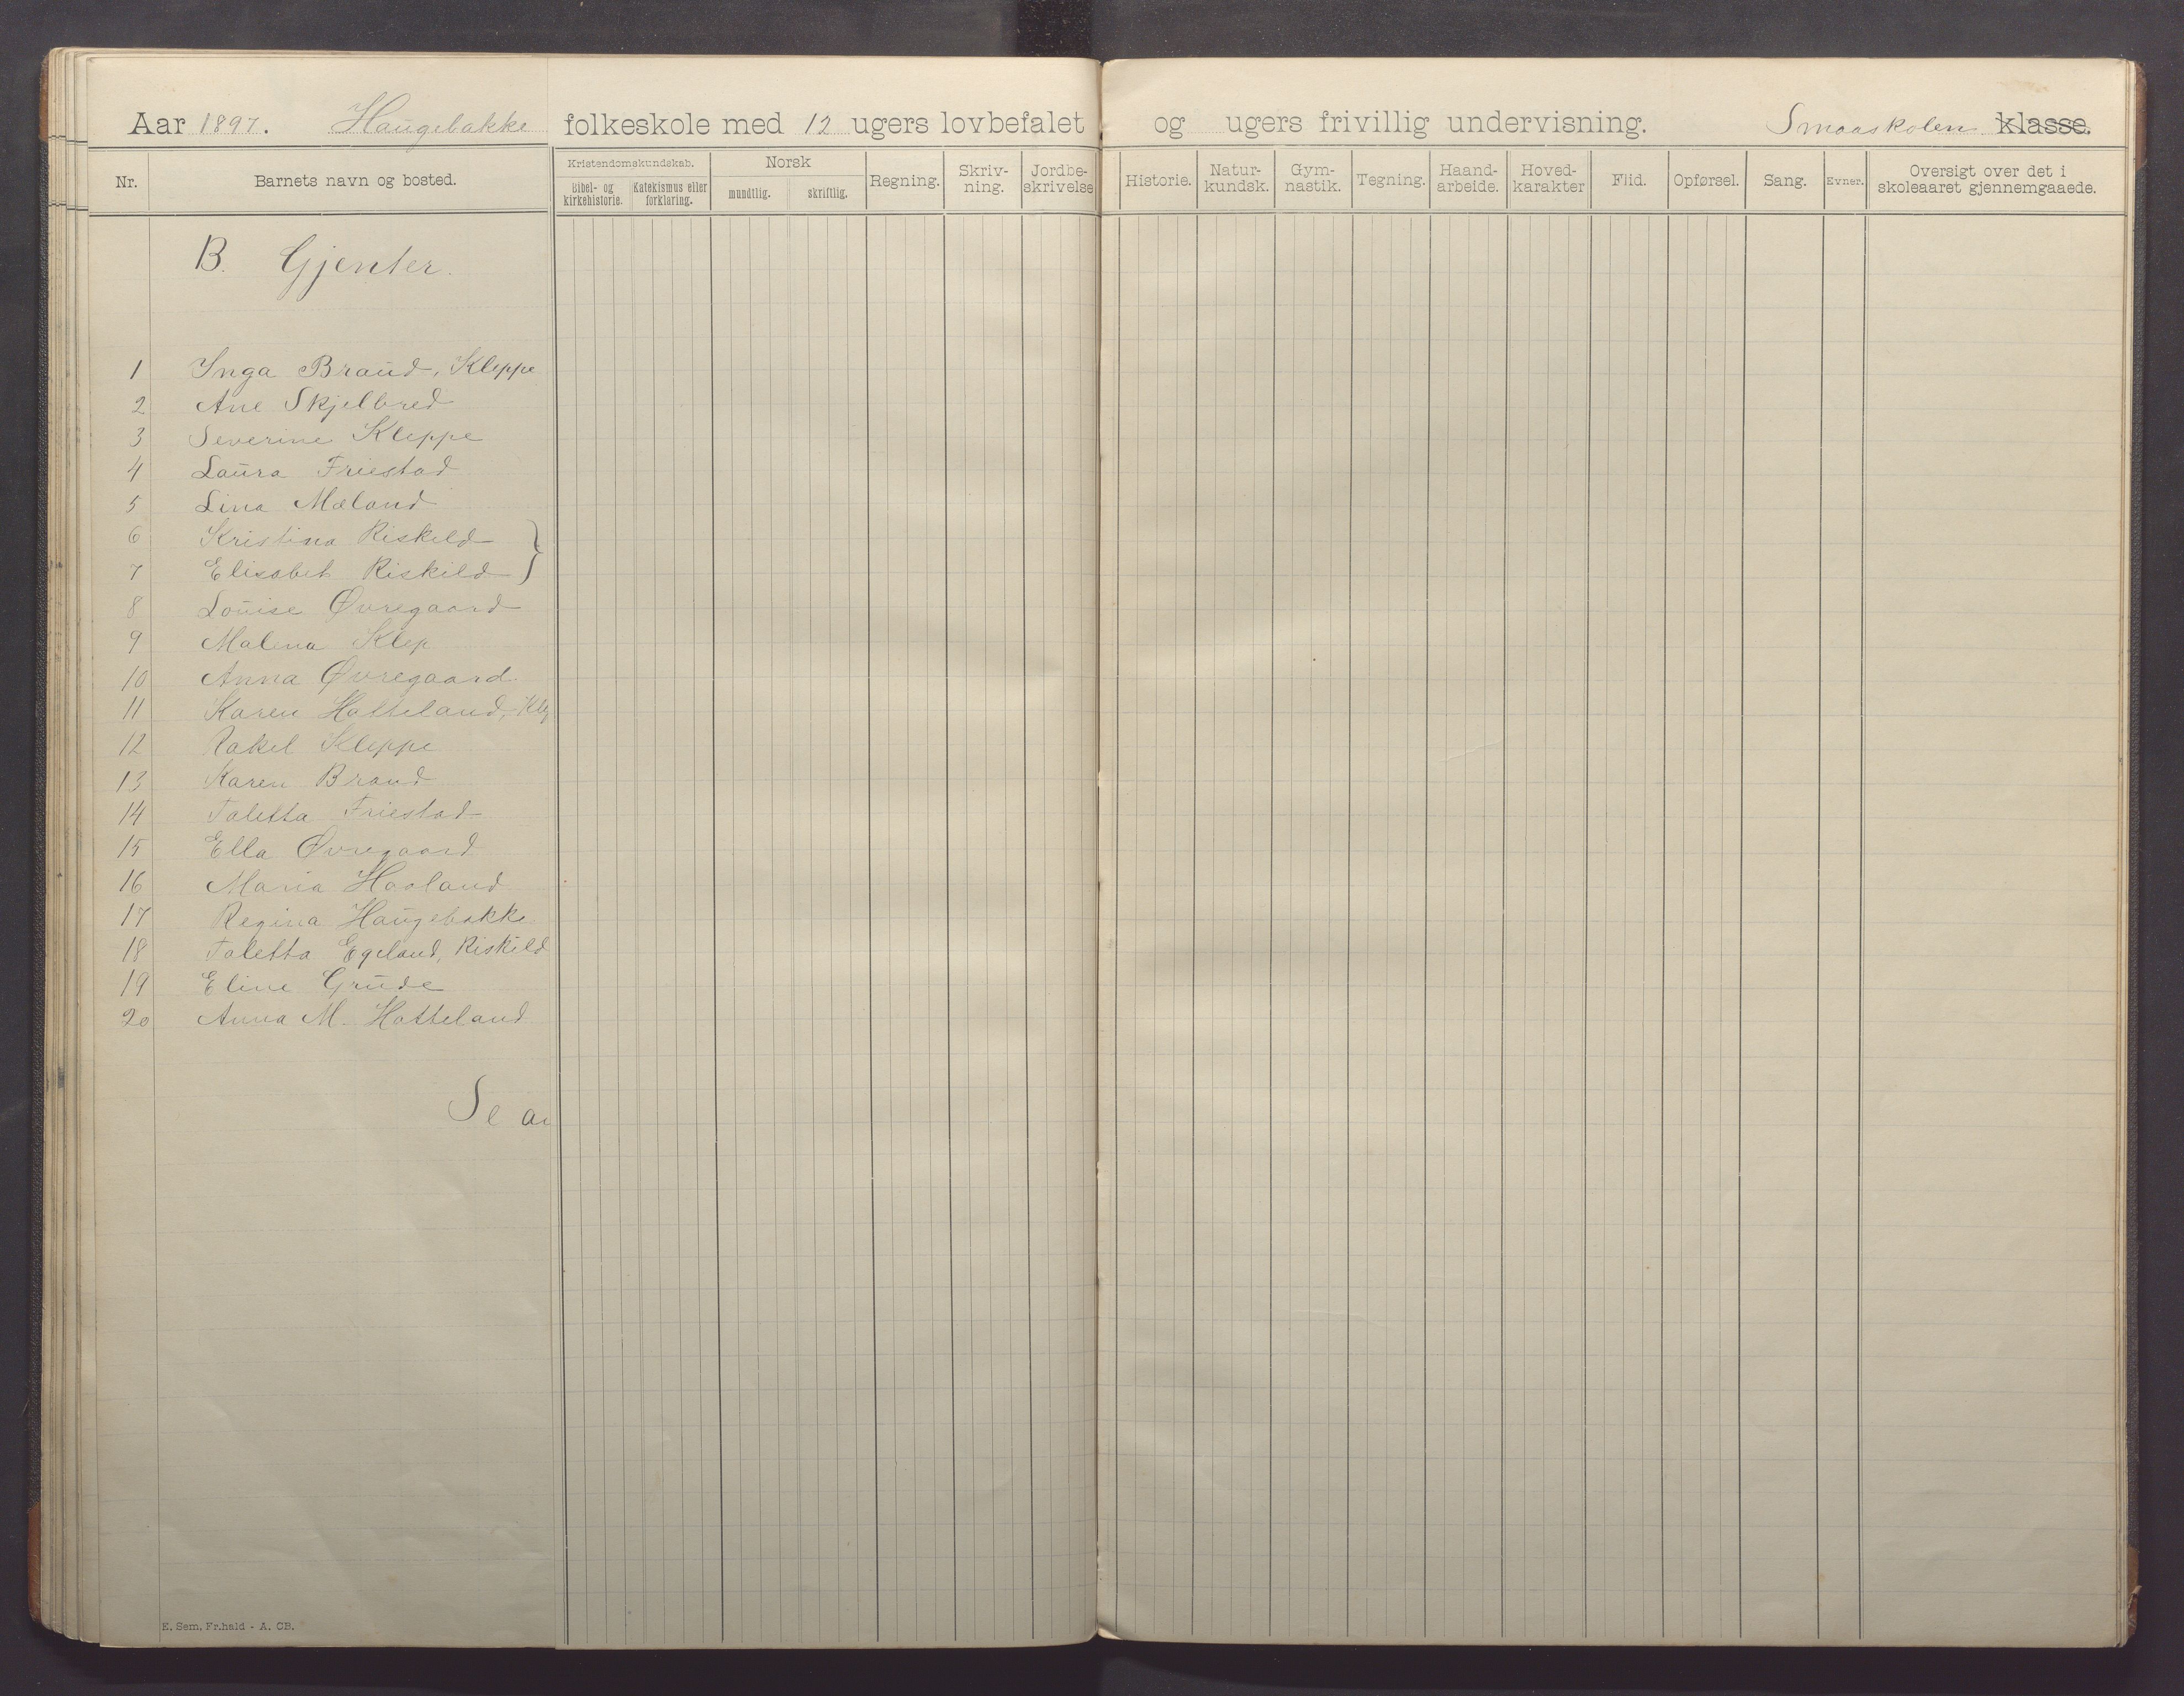 Aar 1897. Haugebakke folkeskole med 12 ugers lovbefalet og ugers frivillig undervisning. Smaaskolen klasse.
Nr. Barnets navn og bosted. Kristendomskundskab. Bibel- og kirkehistorie. Katekismus eller forklaring. Norsk mundtlig. skriftlig. Regning. Skriv-ning. Jordbe-skrivelse Historie. Natur-kundsk. Gym-nastik. Tegning. Haand-arbeide. Hoved-karakter Flid. Opførsel. Sang. Evner. Oversigt over det i skoleaaret gjennemgaaede.
B. Gjenter.
1 Inga Braud, Kleppe
2 Ane Skjelbred
3 Severine Kleppe
4 Laura Friestad
5 Lina Mæland
6 Kristina Riskild }
7 Elisabet Riskild }
8 Louise Øvregaard
9 Malena Klep
10 Anna Øvregaard
11 Karen Hatteland, Klep
12 Rakel Kleppe
13 Karen Braud
14 Taletta Friestad
15 Ella Øvregaard
16 Maria Haaland
17 Regina Haugebakke
18 Taletta Egeland, Riskild
19 Eline Grude
20 Anna M. Hatteland
Se
K. Sem. Fr.hald - A. CB.